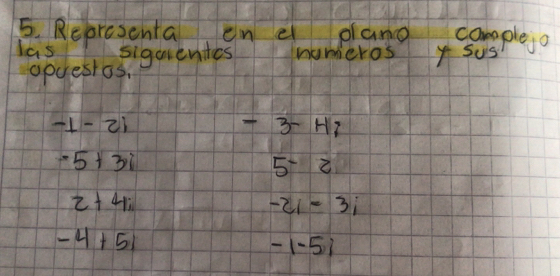 5. Representa en el plano complejo
las siguientes numeros y sus
opuestos.
-1 - 2i - 3 - 4i
-5 + 3i 5 - 2
2 + 4i -2i - 3i
-4 + 5i -1 - 5i